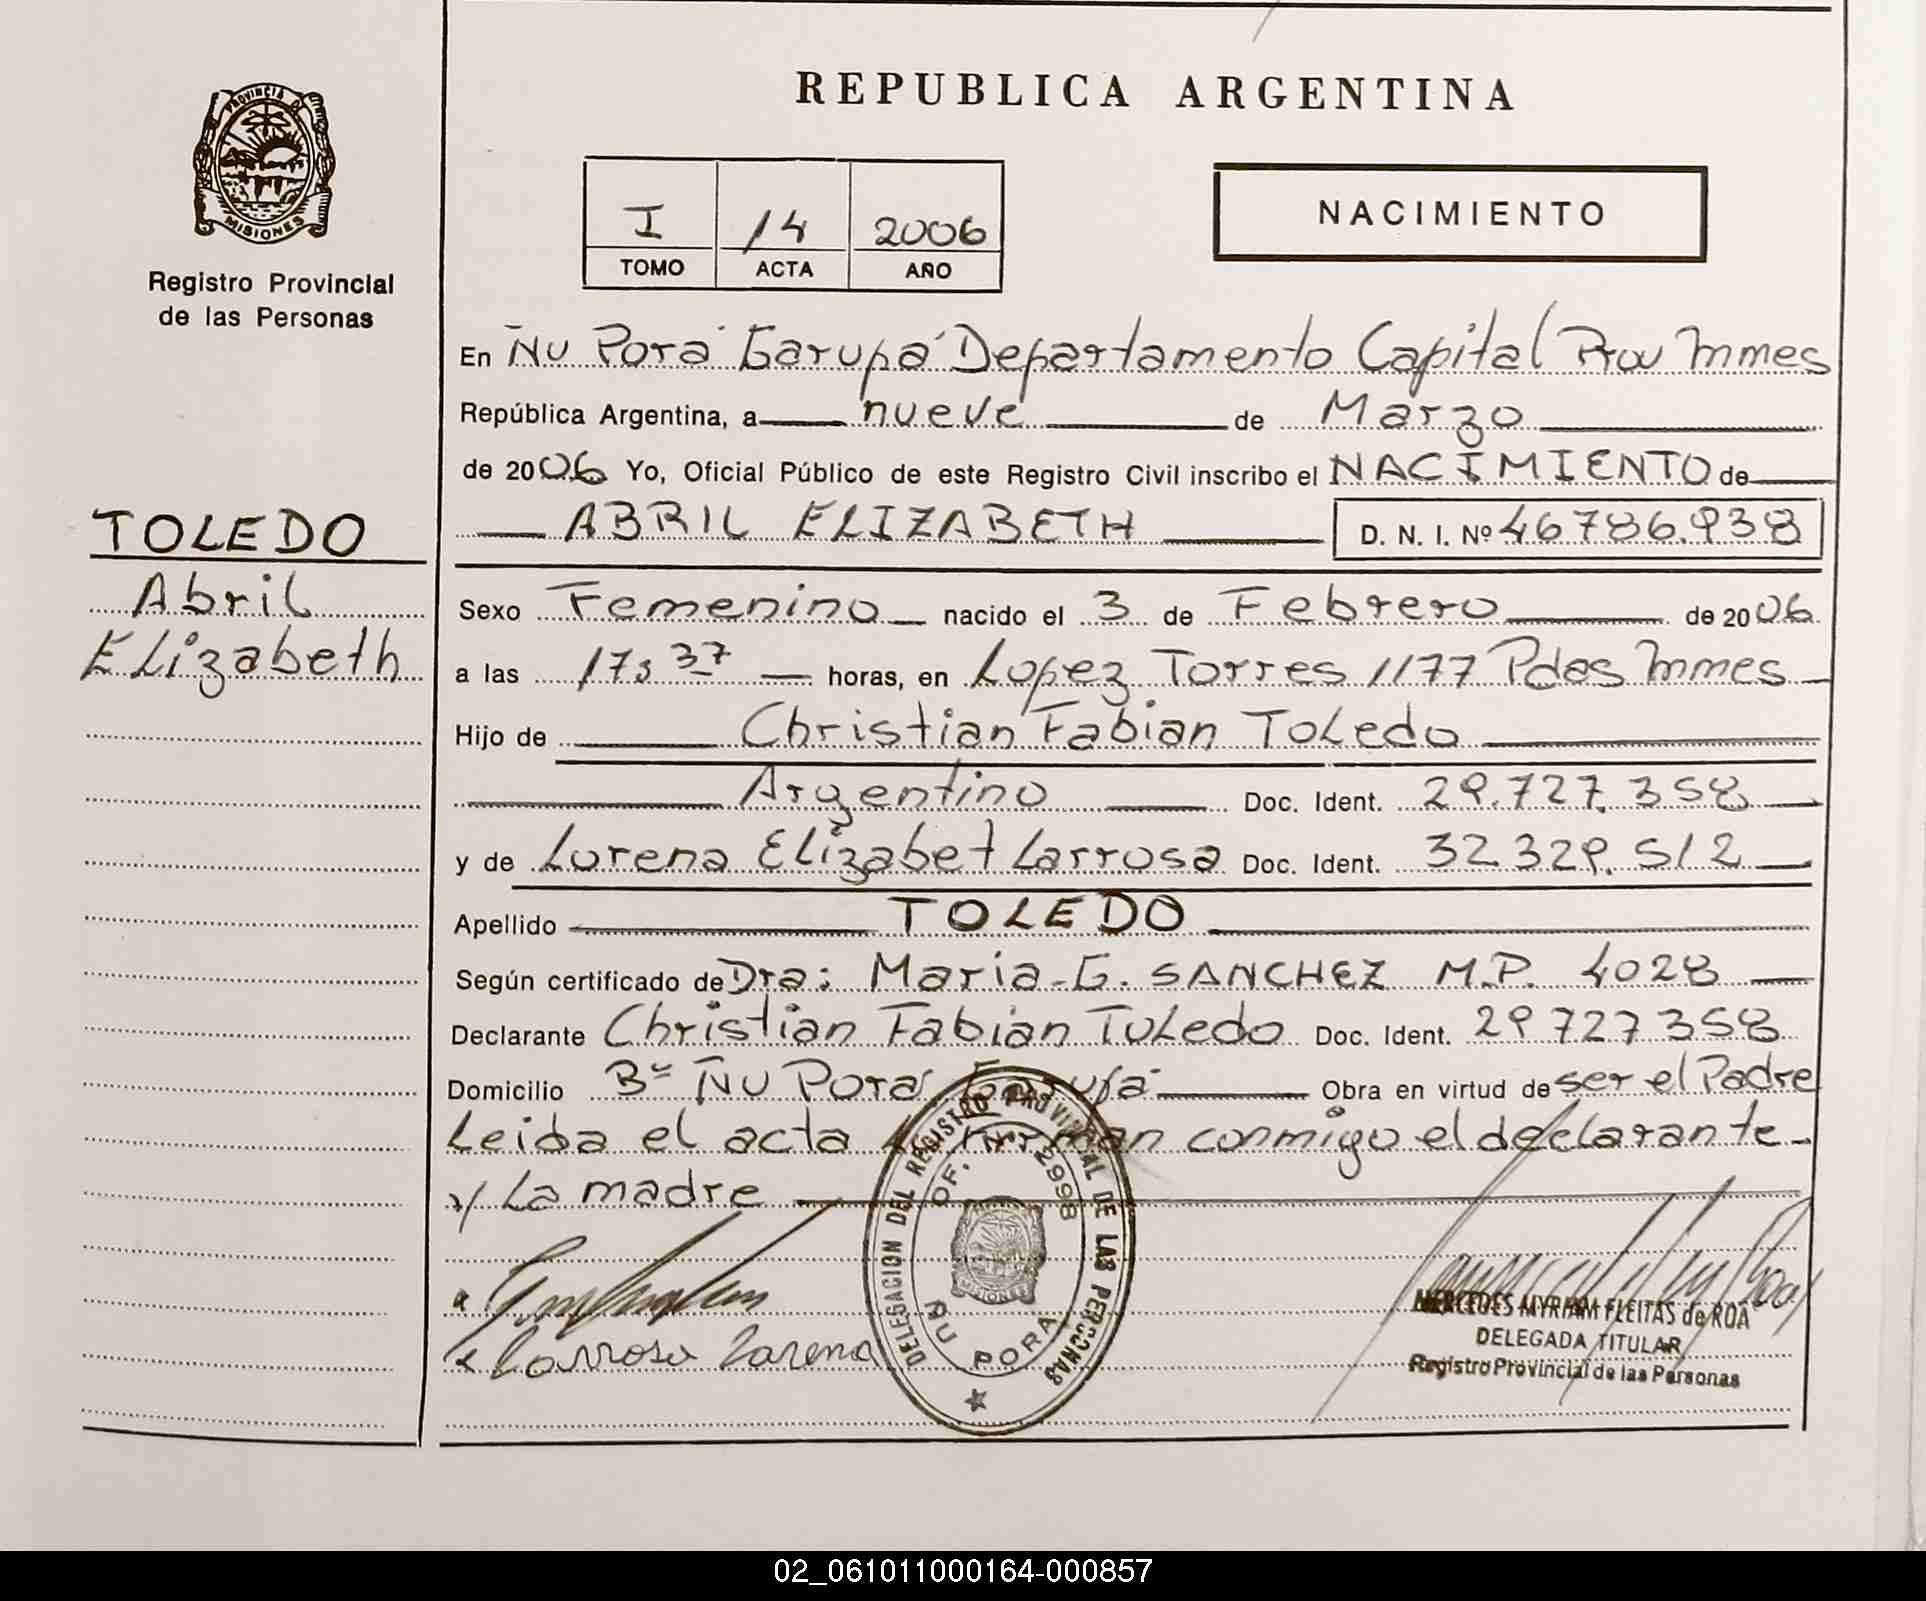 REPUBLICA ARGENTINA
PROVINCIA DE MISIONES
Registro Provincial
de las Personas
I 14 2006
TOMO ACTA AÑO
NACIMIENTO
En Ñu Porá Garupá Departamento Capital Prov Mnnes
República Argentina, a nueve de Marzo
de 2006 Yo, Oficial Público de este Registro Civil inscribo el NACIMIENTO de
ABRIL ELIZABETH D. N. I. Nº 46786.938
TOLEDO
Abril
Elizabeth
Sexo Femenino nacido el 3 de Febrero de 2006
a las 17:37 horas, en Lopez Torres 1177 Pdas Mnnes
Hijo de Christian Fabian Toledo
Argentino Doc. Ident. 29.727.358
y de Lorena Elizabet Larrosa Doc. Ident. 32.329.512
Apellido TOLEDO
Según certificado de Dra: Maria G. SANCHEZ M.P. 4028
Declarante Christian Fabian Toledo Doc. Ident. 29 727 358
Domicilio Bº Ñu Porá Garupá Obra en virtud de ser el Padre
Leida el acta la firman conmigo el declarante
y La madre
Larrosa Lorena
DELEGACION DEL REGISTRO PROVINCIAL DE LAS PERSONAS
OF. 2998
MISIONES
ÑU PORA
MERCEDES MYRIAM FLEITAS de ROA
DELEGADA TITULAR
Registro Provincial de las Personas
02_061011000164-000857